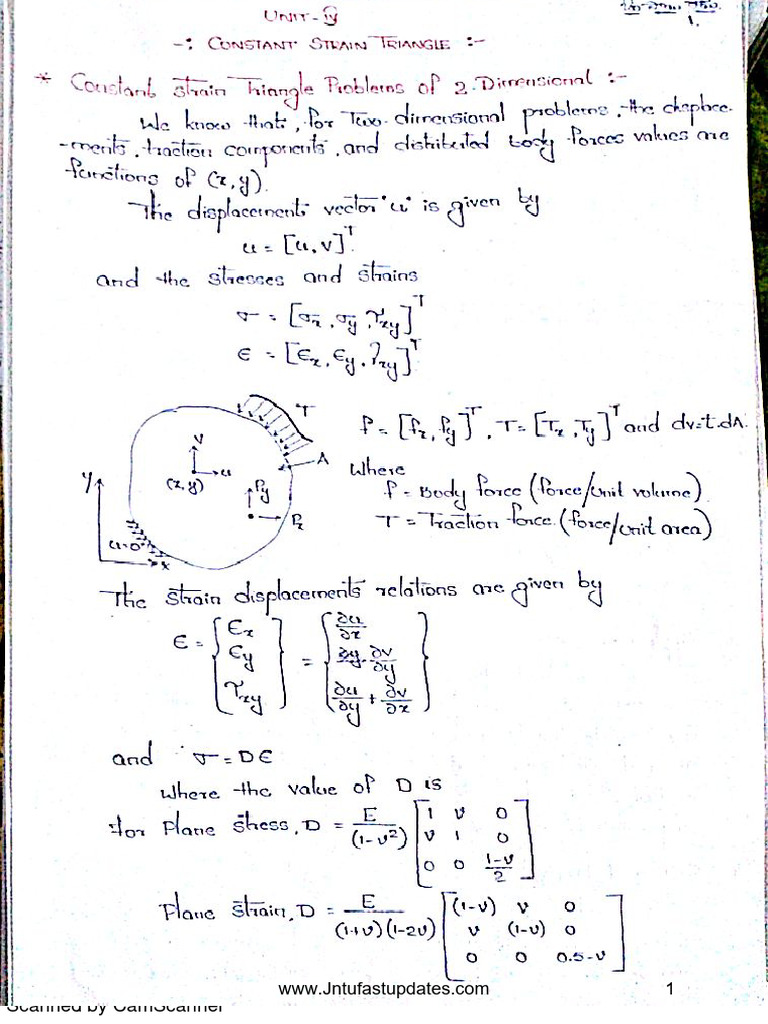 UNIT-IV
1.
-: CONSTANT STRAIN TRIANGLE :-
* Constant Strain Triangle Problems of 2-Dimensional :-
We know that, for Two dimensional problems, the displace-
-ments, traction components, and distributed body forces values are
functions of (x,y).
The displacement vector 'u' is given by
u = [u, v]^T
and the stresses and strains
σ = [σx, σy, τxy]^T
ε = [εx, εy, γxy]^T
T
f = [fx, fy]^T, T = [Tx, Ty]^T and dv=t.dA.
v
u
(x,y)
A
Where
y
Py
Px
f = Body force (force/unit volume)
T = Traction force (force/unit area)
u=0
x
The strain displacements relations are given by
ε = { εx εy τxy } = { ∂u/∂x ∂v/∂y ∂u/∂y + ∂v/∂x }
and σ = Dε
where the value of D is
for Plane stress, D = E/(1-ν²) [ 1 ν 0
ν 1 0
0 0 (1-ν)/2 ]
Plane strain, D = E/(1+ν)(1-2ν) [ (1-ν) ν 0
ν (1-ν) 0
0 0 0.5-ν ]
www.Jntufastupdates.com 1
Scanned by CamScanner